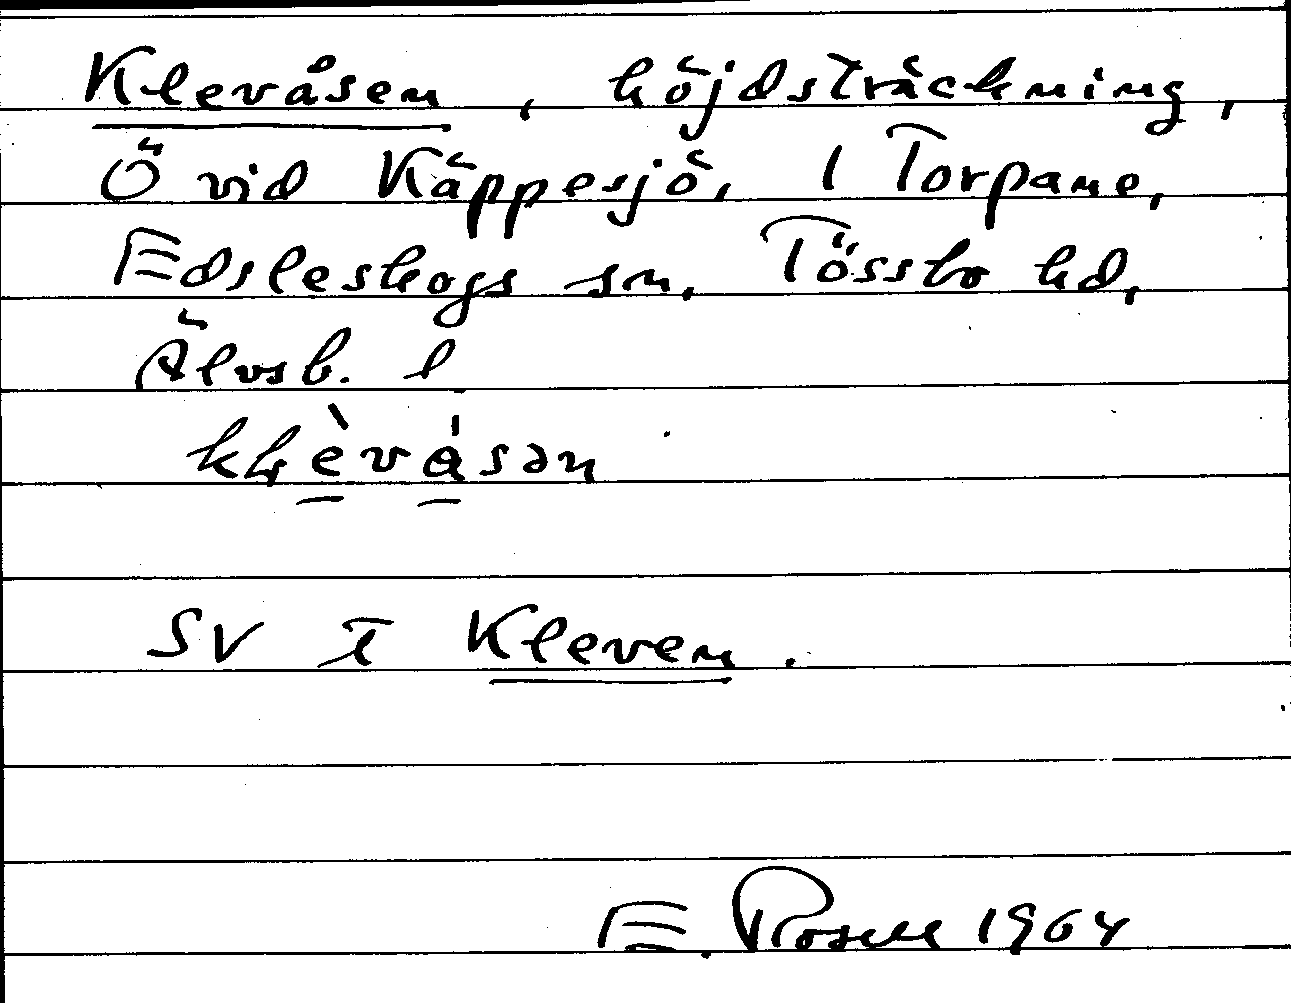 Klevåsen, höjdsträckning,
Ö vid Käppesjö, 1 Torpane,
Edsleskogs sn, Tössbo hd,
Älvsb. l
klèvǻsən
SV i Kleven.
E. Rosell 1964